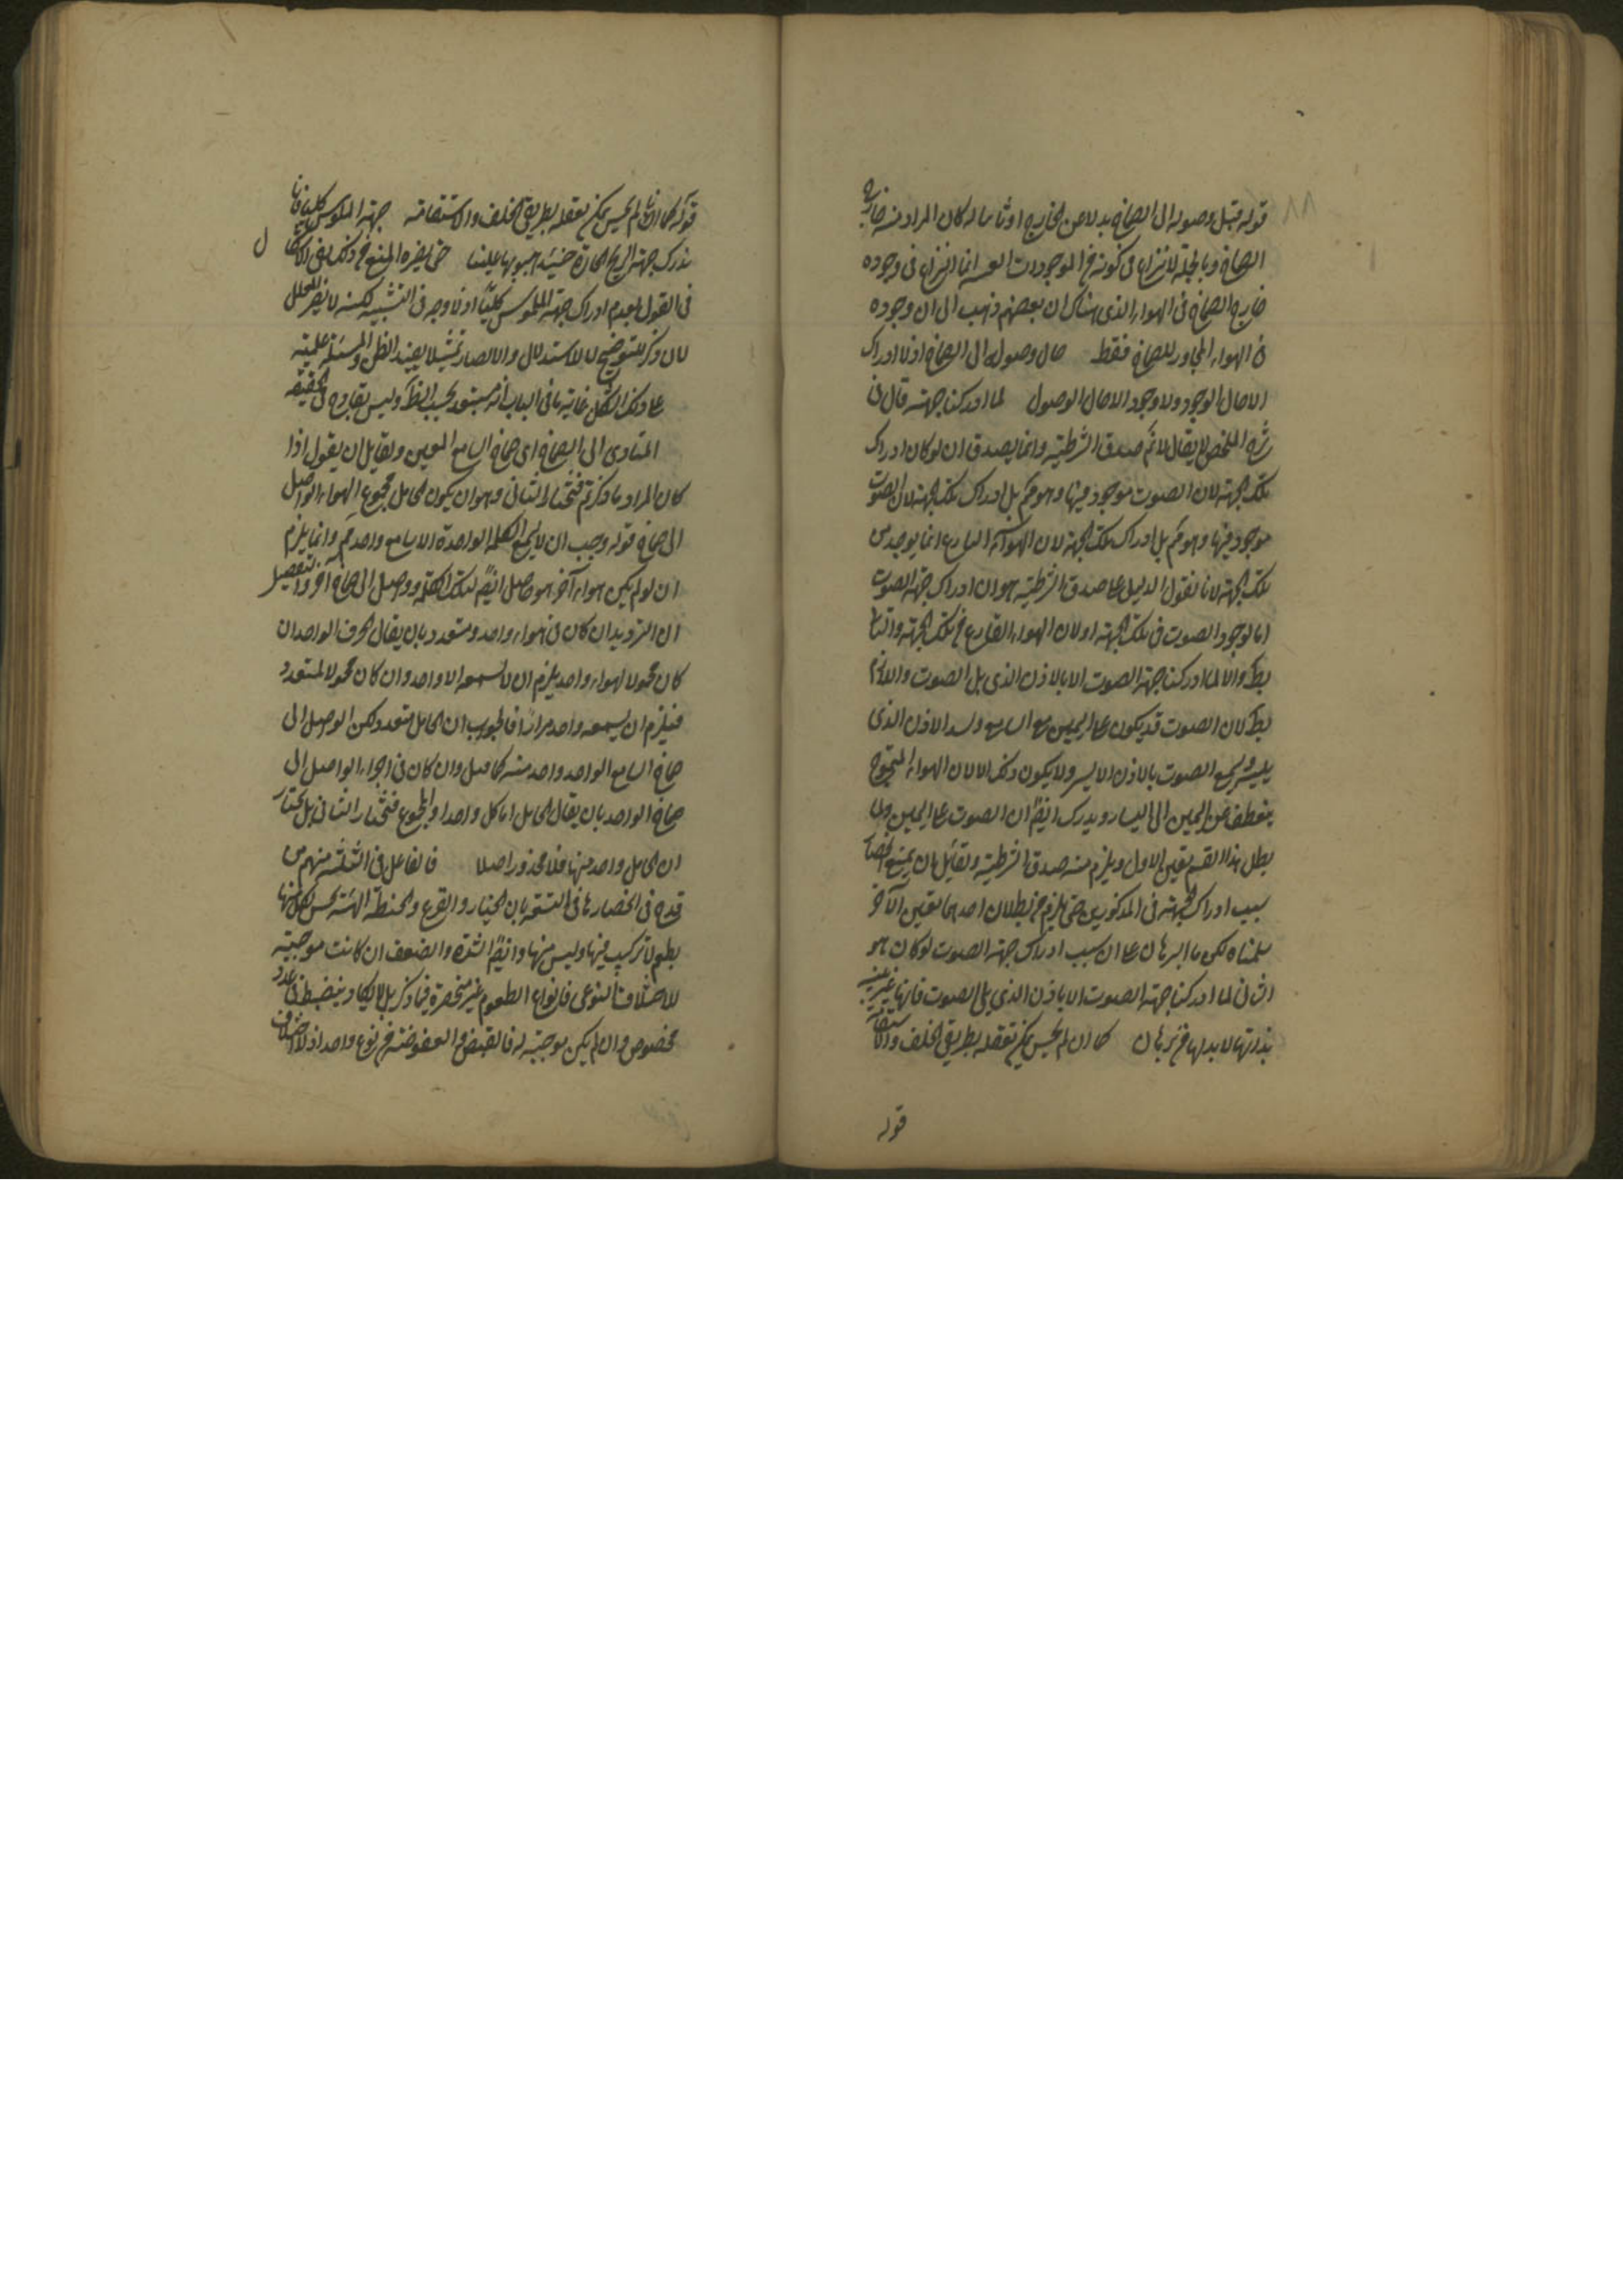 قوله قبل وصوله الى الصماخ بدلا عن الخارج او ثانيا له كان المراد منه خارج
الصماخ وبالجملة لا نزاع فى كونه من الموجودات العينية انما النزاع فى وجوده
خارج الصماخ فى الهواء الذى هناك ان بعضهم ذهب الى ان وجوده
فى الهواء المجاور للصماخ فقط حال وصوله الى الصماخ اذ لا ادراك
الا حال الوجود ولا وجود الا حال الوصول لما ادركنا جهته قال فى
شرح الملخص لا يقال لا نم صدق الشرطية وانما يصدق ان لو كان ادراك
تلك الجهة لان الصوت موجود فيها وهو مم بل ادراك تلك الجهة لان الصوت
موجود فيها وهو مم بل ادراك تلك الجهة لان الهواء القارع انما يوجد من
تلك الجهة لانا نقول الدليل على صدق الشرطية هو ان ادراك جهة الصوت
اما لوجود الصوت فى تلك الجهة او لان الهواء القارع من تلك الجهة والثانى
بط والا لما ادركنا جهة الصوت الا بالاذن الذى يلى الصوت واللازم
بط لان الصوت قد يكون على اليمين مع السامع وسد الاذن الذى
يليه ويسمع الصوت بالاذن الايسر ولا يكون ذلك الا لان الهواء المتموج
ينعطف عن اليمين الى اليسار ويدرك ايضا ان الصوت على اليمين ولما
بطل هذا القسم تعين الاول ويلزم منه صدق الشرطية ولقائل ان يمنع انحصار
سبب ادراك الجهة فى المذكورين حتى يلزم من بطلان احدهما تعين الآخر
سلمناه لكن ما البرهان على ان سبب ادراك جهة الصوت لو كان هو
الثانى لما ادركنا جهة الصوت الا باذن الذى يلى الصوت فانها غير بينة
بذاتها لا بد لها من برهان كما ان لم يحس يمكن تعقله بطريق الخلف والاستقامة
قوله
قوله كما ان ما لم يحس يمكن تعقله بطريق الخلف والاستقامة جهة الملموس كليا فانا
ندرك جهة الريح الحارة حينئذ هبوبها علينا حتى يضره المنع من ذلك
فى القول بعدم ادراك جهة الملموس كليا اذ لا وجه فى التشبيه لكنه لا يضر المعلل
لان ذكر للتوضيح لا للاستدلال والابصار تمثيلا يفيد الظن والمسئلة علمية
على ذلك الشكل غاية ما فى الباب انه مستبعد بحسب الظ وليس بقادح فى الحقيقة
المتادى الى الصماخ اى صماخ السامع المعين ولقائل ان يقول اذا
كان المراد ما ذكرتم فنختار الثانى وهو ان يكون الحامل مجموع الهواء الواصل
الى صماخ قوله وجب ان لا يسمع الكلمة الواحدة الا سامع واحد مم وانما يلزم
ان لو لم يكن هواء آخر هو حامل ايضا لتلك الكلمة ووصل الى صماخ آخر والتفصيل
ان الترديد ان كان فى هواء واحد ومتعدد بان يقال الحرف الواحد ان
كان محمولا لهواء واحد يلزم ان لا يسمعه الا واحد وان كان محمولا لمتعدد
فيلزم ان يسمعه واحد مرارا فالجواب ان الحامل متعدد لكن الواصل الى
صماخ السامع الواحد واحد منه كما قيل وان كان فى اجزاء الواصل الى
صماخ الواحد بان يقال الحامل اما كل واحد او المجموع فنختار الثانى بل نختار
ان الحامل واحد منها فلا محذور اصلا فالفاعل فى الثلثة منهم من
قدح فى انحصار ما فى التسعة بان الخيار والقرع والحنطة النية يحس لكل منها
بطعم لا تركيب فيها وليس منها وايضا الشدة والضعف ان كانت موجبة
للاختلاف النوعى فانواع الطعوم غير منحصرة فيما ذكر بل لا يكاد ينضبط فى عدد
مخصوص وان لم يكن موجبة له فالقبض والعفوصة من نوع واحد اذ لا اختلاف